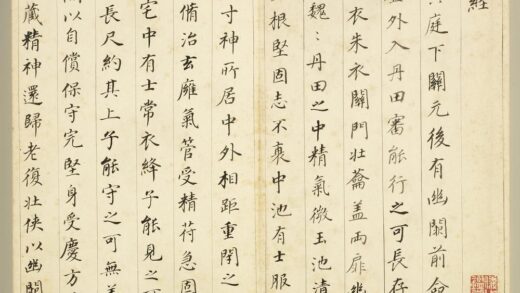 經
庭下關元後有幽闕前命
外入丹田審能行之可長存
衣朱衣關門壯籥蓋兩扉
魏〻丹田之中精氣微玉池清
根堅固志不衰中池有士服
寸神所居中外相距重閉之
脩治玄廱氣管受精苻急固
宅中有士常衣絳子能見之可
長尺約其上子能守之可無恙
以自償保守完堅身受慶方
藏精神還歸老復壯俠以幽闕